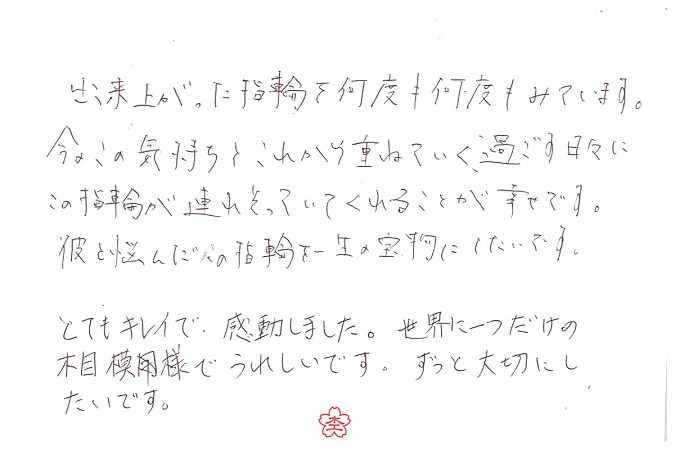 出来上がった指輪を何度も何度もみています。
今のこの気持ちとこれから重ねていく、過ごす日々に
この指輪が連れそっていてくれることが幸せです。
彼と悩んだこの指輪を一生の宝物にしたいです。
とてもキレイで、感動しました。世界に一つだけの
木目模様でうれしいです。ずっと大切にし
たいです。